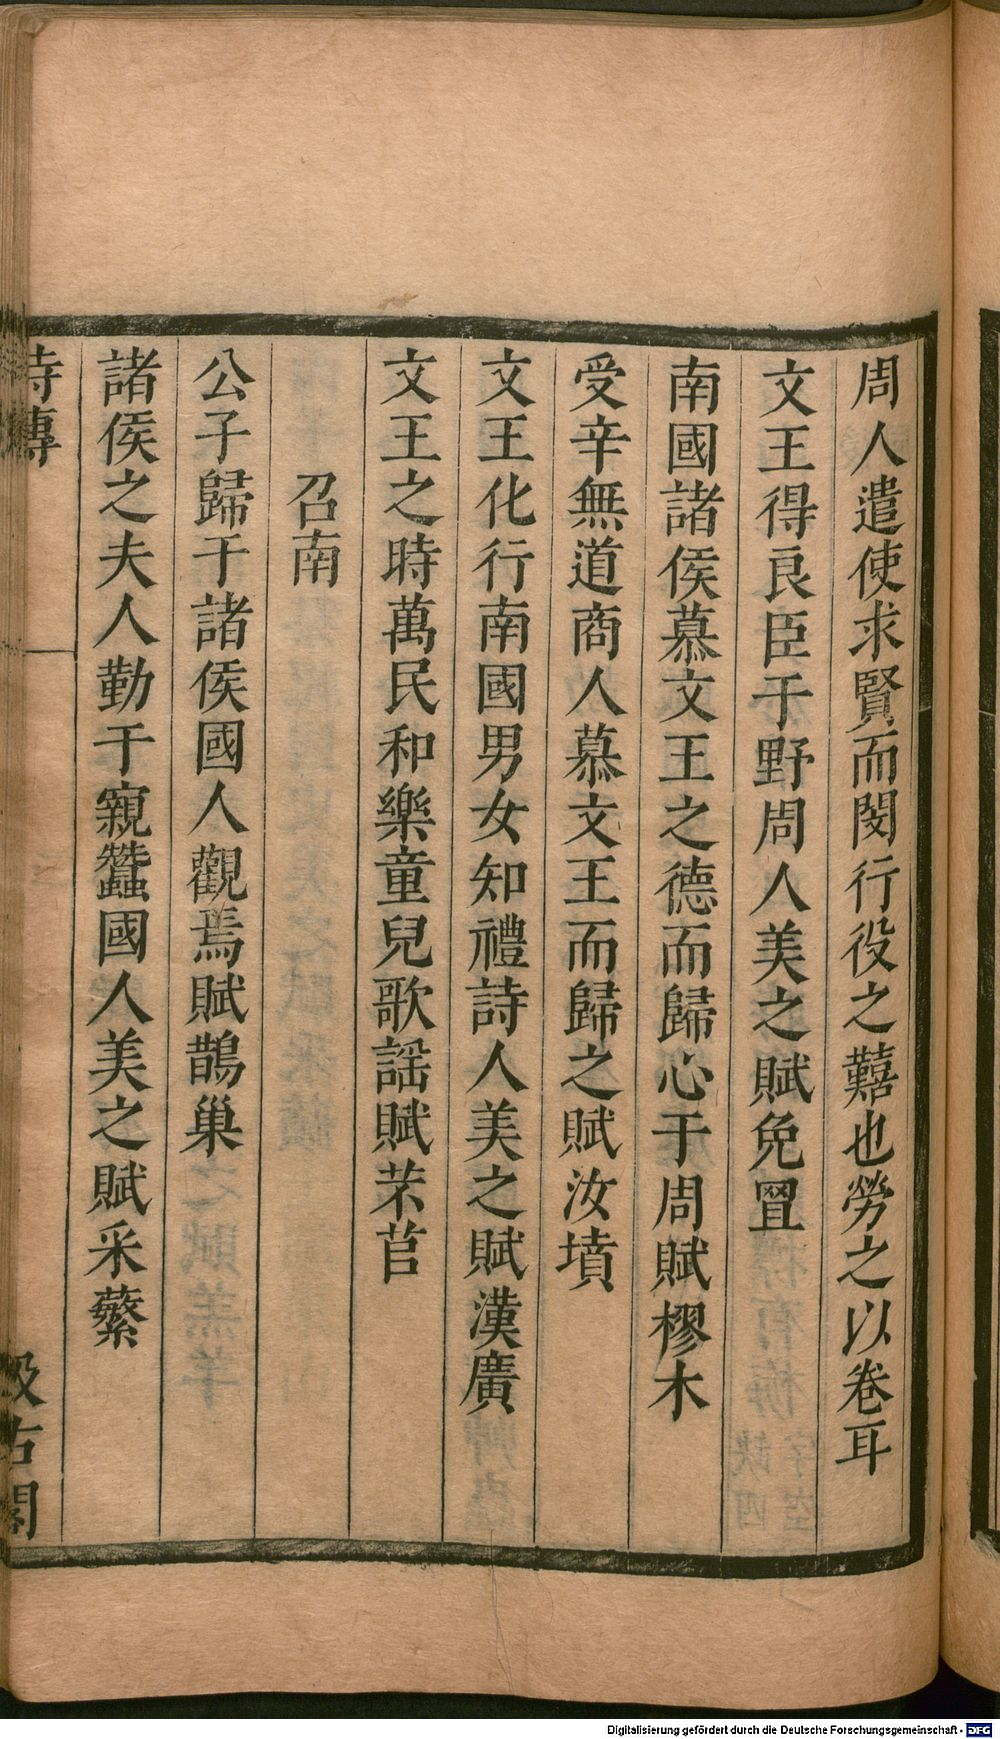 周人遣使求賢而閔行役之囏也勞之以卷耳
文王得良臣于野周人美之賦兔罝
南國諸侯慕文王之德而歸心于周賦樛木
受辛無道商人慕文王而歸之賦汝墳
文王化行南國男女知禮詩人美之賦漢廣
文王之時萬民和樂童兒歌謡賦芣苢
召南
公子歸于諸侯國人觀焉賦鵲巢
諸侯之夫人勤于寴蠶國人美之賦采蘩
詩傳
汲古閣
Digitalisierung gefördert durch die Deutsche Forschungsgemeinschaft - DFG